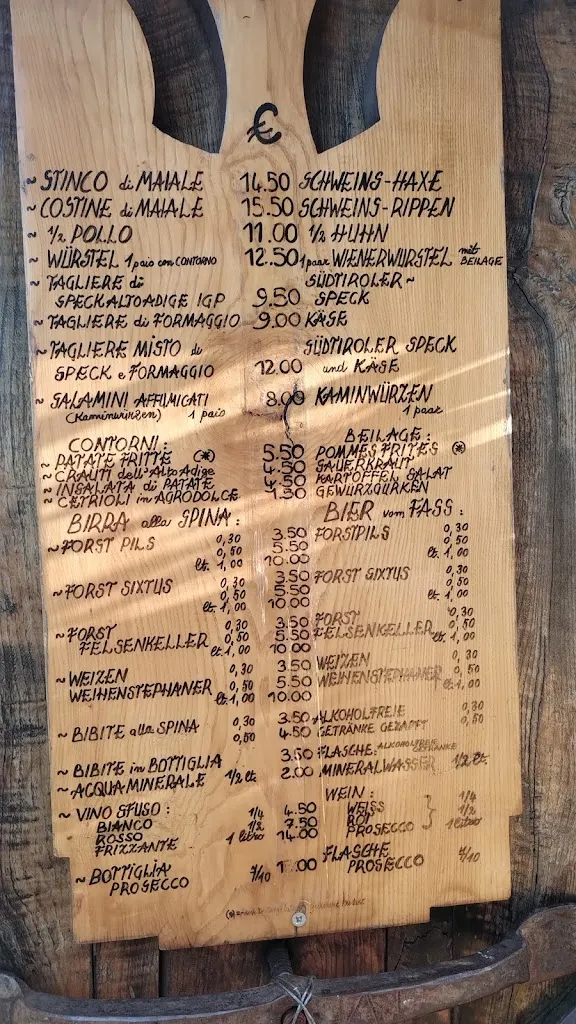 €
~ STINCO di MAIALE 14.50 SCHWEINS-HAXE
~ COSTINE di MAIALE 15.50 SCHWEINS-RIPPEN
~ 1/2 POLLO 11.00 1/2 HUHN
~ WÜRSTEL 1 paio con CONTORNO 12.50 1 paar WIENERWÜRSTEL mit BEILAGE
~ TAGLIERE di SÜDTIROLER ~
SPECK ALTO ADIGE IGP 9.50 SPECK
~ TAGLIERE di FORMAGGIO 9.00 KÄSE
~ TAGLIERE MISTO di SÜDTIROLER SPECK
SPECK e FORMAGGIO 12.00 und KÄSE
~ SALAMINI AFFUMICATI 8.00 KAMINWÜRZEN
(Kaminwürzen) 1 paio 1 paar
CONTORNI: BEILAGE:
~ PATATE FRITTE (*) 5.50 POMMES FRITES (*)
~ CRAUTI dell'Alto Adige 4.50 SAUERKRAUT
~ INSALATA di PATATE 4.50 KARTOFFEL SALAT
~ CETRIOLI in AGRODOLCE 1.30 GEWÜRZGURKEN
BIRRA alla SPINA: BIER vom FASS:
~ FORST PILS 0,30 3.50 FORSTPILS 0,30
0,50 5.50 0,50
lt. 1,00 10.00 lt. 1,00
~ FORST SIXTUS 0,30 3.50 FORST SIXTUS 0,30
0,50 5.50 0,50
lt. 1,00 10.00 lt. 1,00
~ FORST 0,30 3.50 FORST 0,30
FELSENKELLER 0,50 5.50 FELSENKELLER 0,50
lt. 1,00 10.00 lt. 1,00
~ WEIZEN 0,30 3.50 WEIZEN 0,30
WEIHENSTEPHANER 0,50 5.50 WEIHENSTEPHANER 0,50
lt. 1,00 10.00 lt. 1,00
~ BIBITE alla SPINA 0,30 3.50 ALKOHOLFREIE 0,30
0,50 4.50 GETRÄNKE GEZAPFT 0,50
~ BIBITE in BOTTIGLIA 3.50 FLASCHE ALKOHOLFREIE GETRÄNKE
~ ACQUA MINERALE 1/2 lt. 2.00 MINERALWASSER 1/2 lt.
~ VINO SFUSO: WEIN:
BIANCO 1/4 4.50 WEISS 1/4
ROSSO 1/2 7.50 ROT 1/2
FRIZZANTE 1 litro 14.00 PROSECCO 1 litro
~ BOTTIGLIA FLASCHE
PROSECCO 7/10 PROSECCO 7/10
(*)